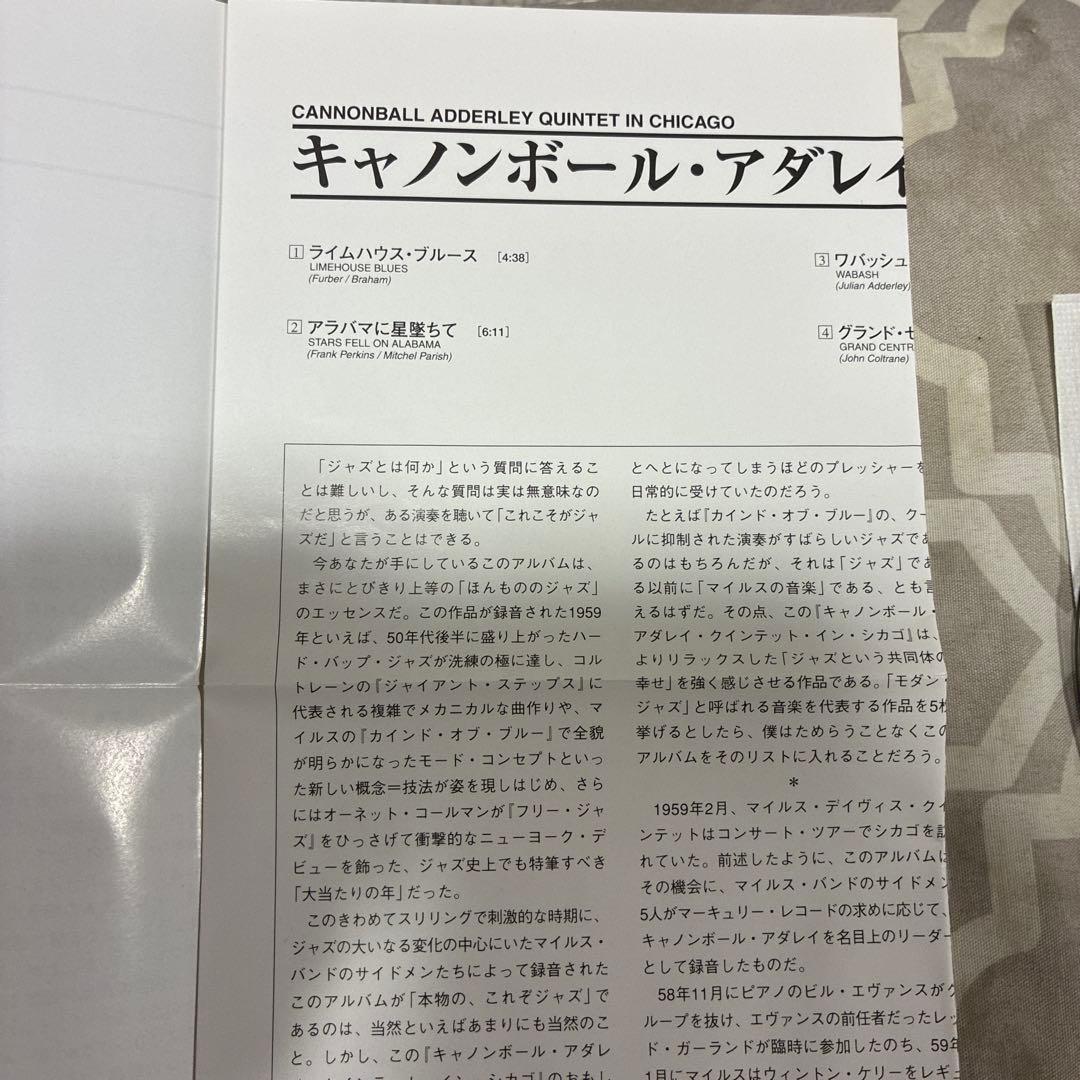 CANNONBALL ADDERLEY QUINTET IN CHICAGO
キャノンボール・アダレイ
1 ライムハウス・ブルース [4:38]
LIMEHOUSE BLUES
(Furber / Braham)
2 アラバマに星墜ちて [6:11]
STARS FELL ON ALABAMA
(Frank Perkins / Mitchel Parish)
3 ワバッシュ
WABASH
(Julian Adderley)
4 グランド・セ
GRAND CENTR
(John Coltrane)
「ジャズとは何か」という質問に答えるこ
とは難しいし、そんな質問は実は無意味なの
だと思うが、ある演奏を聴いて「これこそがジャ
ズだ」と言うことはできる。
今あなたが手にしているこのアルバムは、
まさにとびきり上等の「ほんもののジャズ」
のエッセンスだ。この作品が録音された1959
年といえば、50年代後半に盛り上がったハー
ド・バップ・ジャズが洗練の極に達し、コル
トレーンの『ジャイアント・ステップス』に
代表される複雑でメカニカルな曲作りや、マ
イルスの『カインド・オブ・ブルー』で全貌
が明らかになったモード・コンセプトといっ
た新しい概念＝技法が姿を現しはじめ、さら
にはオーネット・コールマンが『フリー・ジャ
ズ』をひっさげて衝撃的なニューヨーク・デ
ビューを飾った、ジャズ史上でも特筆すべき
「大当たりの年」だった。
このきわめてスリリングで刺激的な時期に、
ジャズの大いなる変化の中心にいたマイルス・
バンドのサイドメンたちによって録音された
このアルバムが「本物の、これぞジャズ」で
あるのは、当然といえばあまりにも当然のこ
と。しかし、この『キャノンボール・アダレ
イ・クインテット・イン・シカゴ』のおもし
とへとになってしまうほどのプレッシャーを
日常的に受けていたのだろう。
たとえば『カインド・オブ・ブルー』の、クー
ルに抑制された演奏がすばらしいジャズであ
るのはもちろんだが、それは「ジャズ」であ
る以前に「マイルスの音楽」である、とも言
えるはずだ。その点、この『キャノンボール・
アダレイ・クインテット・イン・シカゴ』は、
よりリラックスした「ジャズという共同体の
幸せ」を強く感じさせる作品である。「モダン・
ジャズ」と呼ばれる音楽を代表する作品を5枚
挙げるとしたら、僕はためらうことなくこの
アルバムをそのリストに入れることだろう。
*
1959年2月、マイルス・デイヴィス・クイ
ンテットはコンサート・ツアーでシカゴを訪
れていた。前述したように、このアルバムは
その機会に、マイルス・バンドのサイドメン
5人がマーキュリー・レコードの求めに応じて、
キャノンボール・アダレイを名目上のリーダー
として録音したものだ。
58年11月にピアノのビル・エヴァンスがグ
ループを抜け、エヴァンスの前任者だったレッ
ド・ガーランドが臨時に参加したのち、59年
1月にマイルスはウィントン・ケリーをレギュ